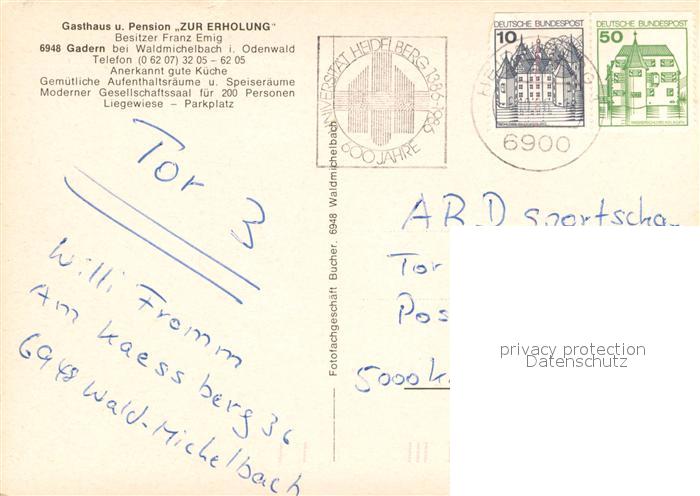 Gasthaus u. Pension „ZUR ERHOLUNG"
Besitzer Franz Emig
6948 Gadern bei Waldmichelbach i. Odenwald
Telefon (0 62 07) 32 05 – 62 05
Anerkannt gute Küche
Gemütliche Aufenthaltsräume u. Speiseräume
Moderner Gesellschaftssaal für 200 Personen
Liegewiese – Parkplatz
UNIVERSITÄT HEIDELBERG 1386-1986
600 JAHRE
10 DEUTSCHE BUNDESPOST
DEUTSCHE BUNDESPOST
50
6900
Tor 3
Willi Fromm
Am Kaessberg 36
6948 Wald-Michelbach
Fotofachgeschäft Bucher, 6948 Waldmichelbach
ARD Sportscha
Tor
Pos
5000 K
privacy protection
Datenschutz